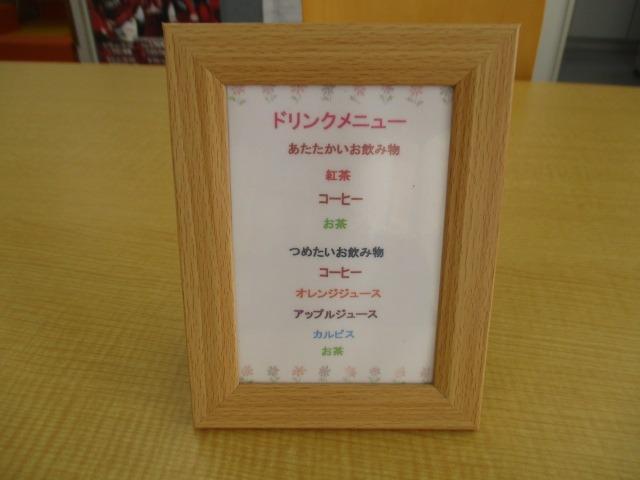 ドリンクメニュー
あたたかいお飲み物
紅茶
コーヒー
お茶
つめたいお飲み物
コーヒー
オレンジジュース
アップルジュース
カルピス
お茶